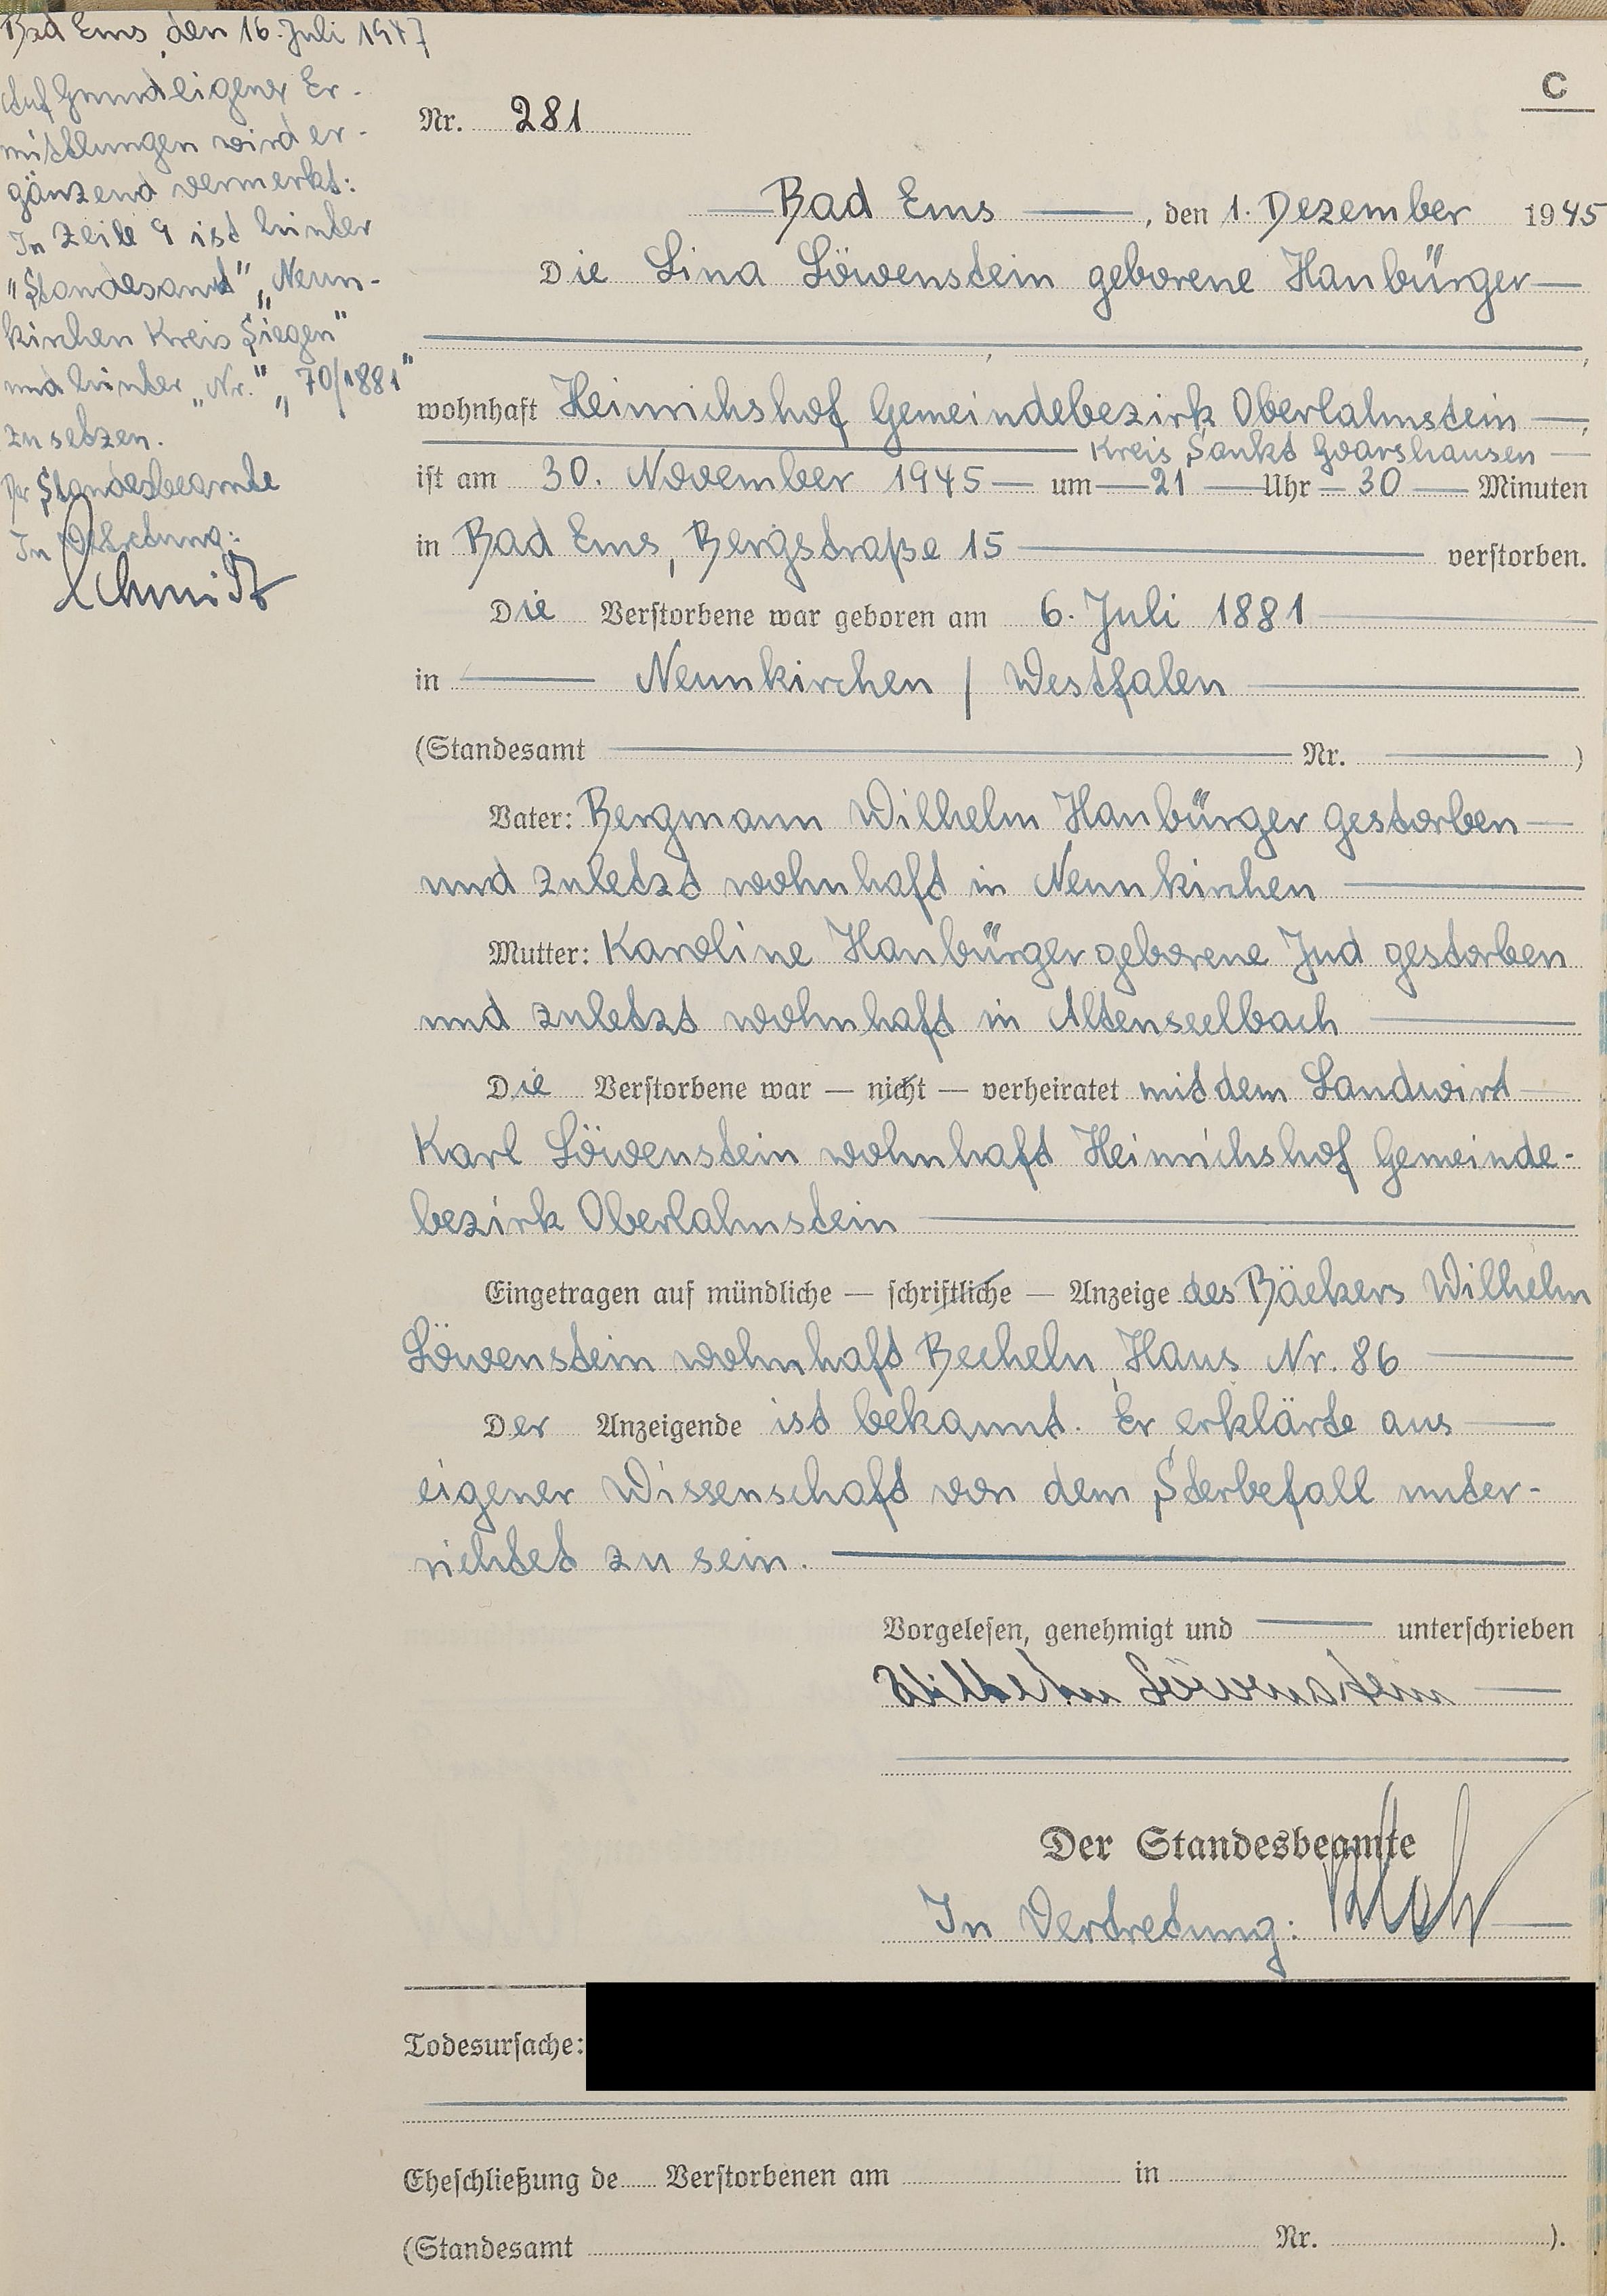 Bad Ems, den 16. Juli 1947
Auf Grund eigener Er-
mittlungen wird er-
gänzend vermerkt:
In Zeile 9 ist hinter
"Standesamt" „Neun-
kirchen Kreis Siegen"
und hinter „Nr." „70/1881"
zu setzen.
Der Standesbeamte
In Vertretung:
Schmidt
C
Nr. 281
Bad Ems, den 1. Dezember 1945
Die Lina Löwenstein geborene Hanbürger
wohnhaft Heinrichshof Gemeindebezirk Oberlahnstein,
Kreis Sankt Goarshausen
ist am 30. November 1945 um 21 Uhr 30 Minuten
in Bad Ems, Bergstraße 15 verstorben.
Die Verstorbene war geboren am 6. Juli 1881
in Neunkirchen / Westfalen
(Standesamt Nr. )
Vater: Bergmann Wilhelm Hanbürger gestorben
und zuletzt wohnhaft in Neunkirchen
Mutter: Karoline Hanbürger geborene Jud gestorben
und zuletzt wohnhaft in Altenseelbach
Die Verstorbene war — nicht — verheiratet mit dem Landwirt
Karl Löwenstein wohnhaft Heinrichshof Gemeinde-
bezirk Oberlahnstein
Eingetragen auf mündliche — schriftliche — Anzeige des Bäckers Wilhelm
Löwenstein wohnhaft Becheln, Haus Nr. 86
Der Anzeigende ist bekannt. Er erklärte aus
eigener Wissenschaft von dem Sterbefall unter-
richtet zu sein.
Vorgelesen, genehmigt und unterschrieben
Wilhelm Löwenstein
Der Standesbeamte
In Vertretung:
Todesursache:
Eheschließung de Verstorbenen am in
(Standesamt Nr. ).